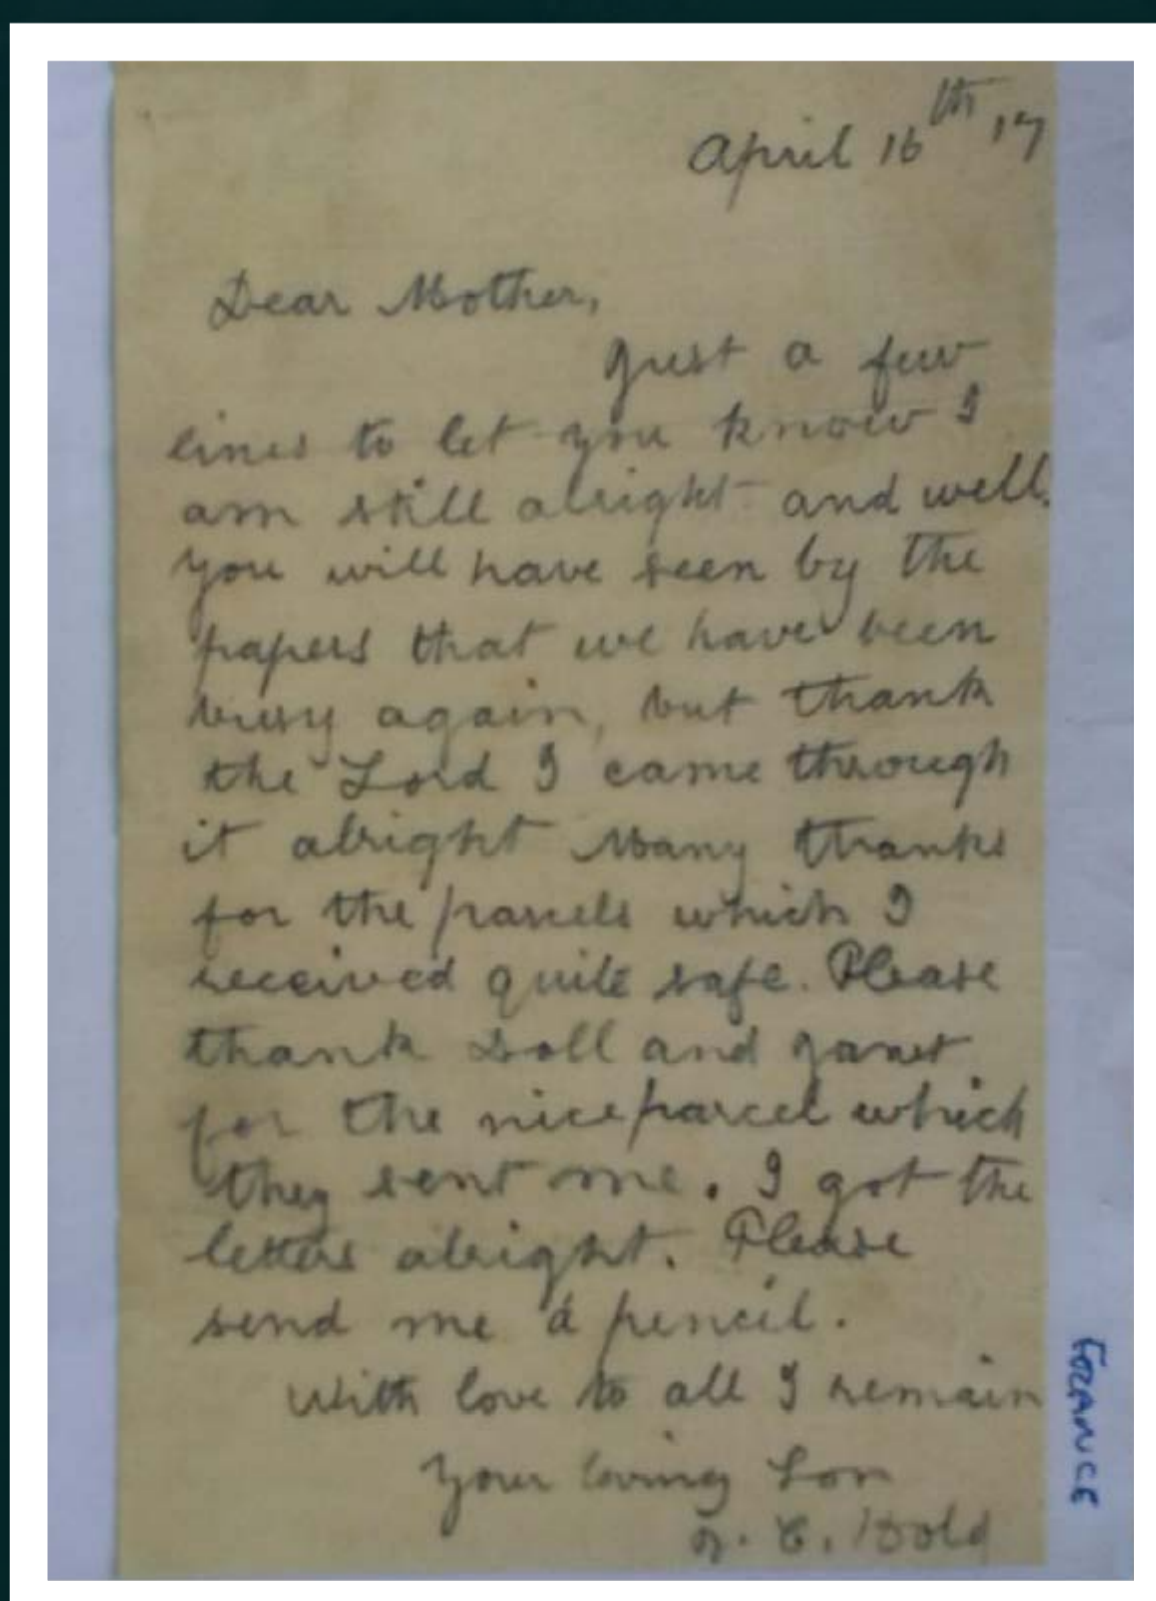 April 16th 17
Dear Mother,
Just a few
lines to let you know I
am still alright and well.
You will have seen by the
papers that we have been
busy again, but thank
the Lord I came through
it alright Many thanks
for the parcels which I
received quite safe. Please
thank Doll and Janet
for the nice parcel which
they sent me. I got the
letters alright. Please
send me a pencil.
With love to all I remain
Your loving Son
FRANCE